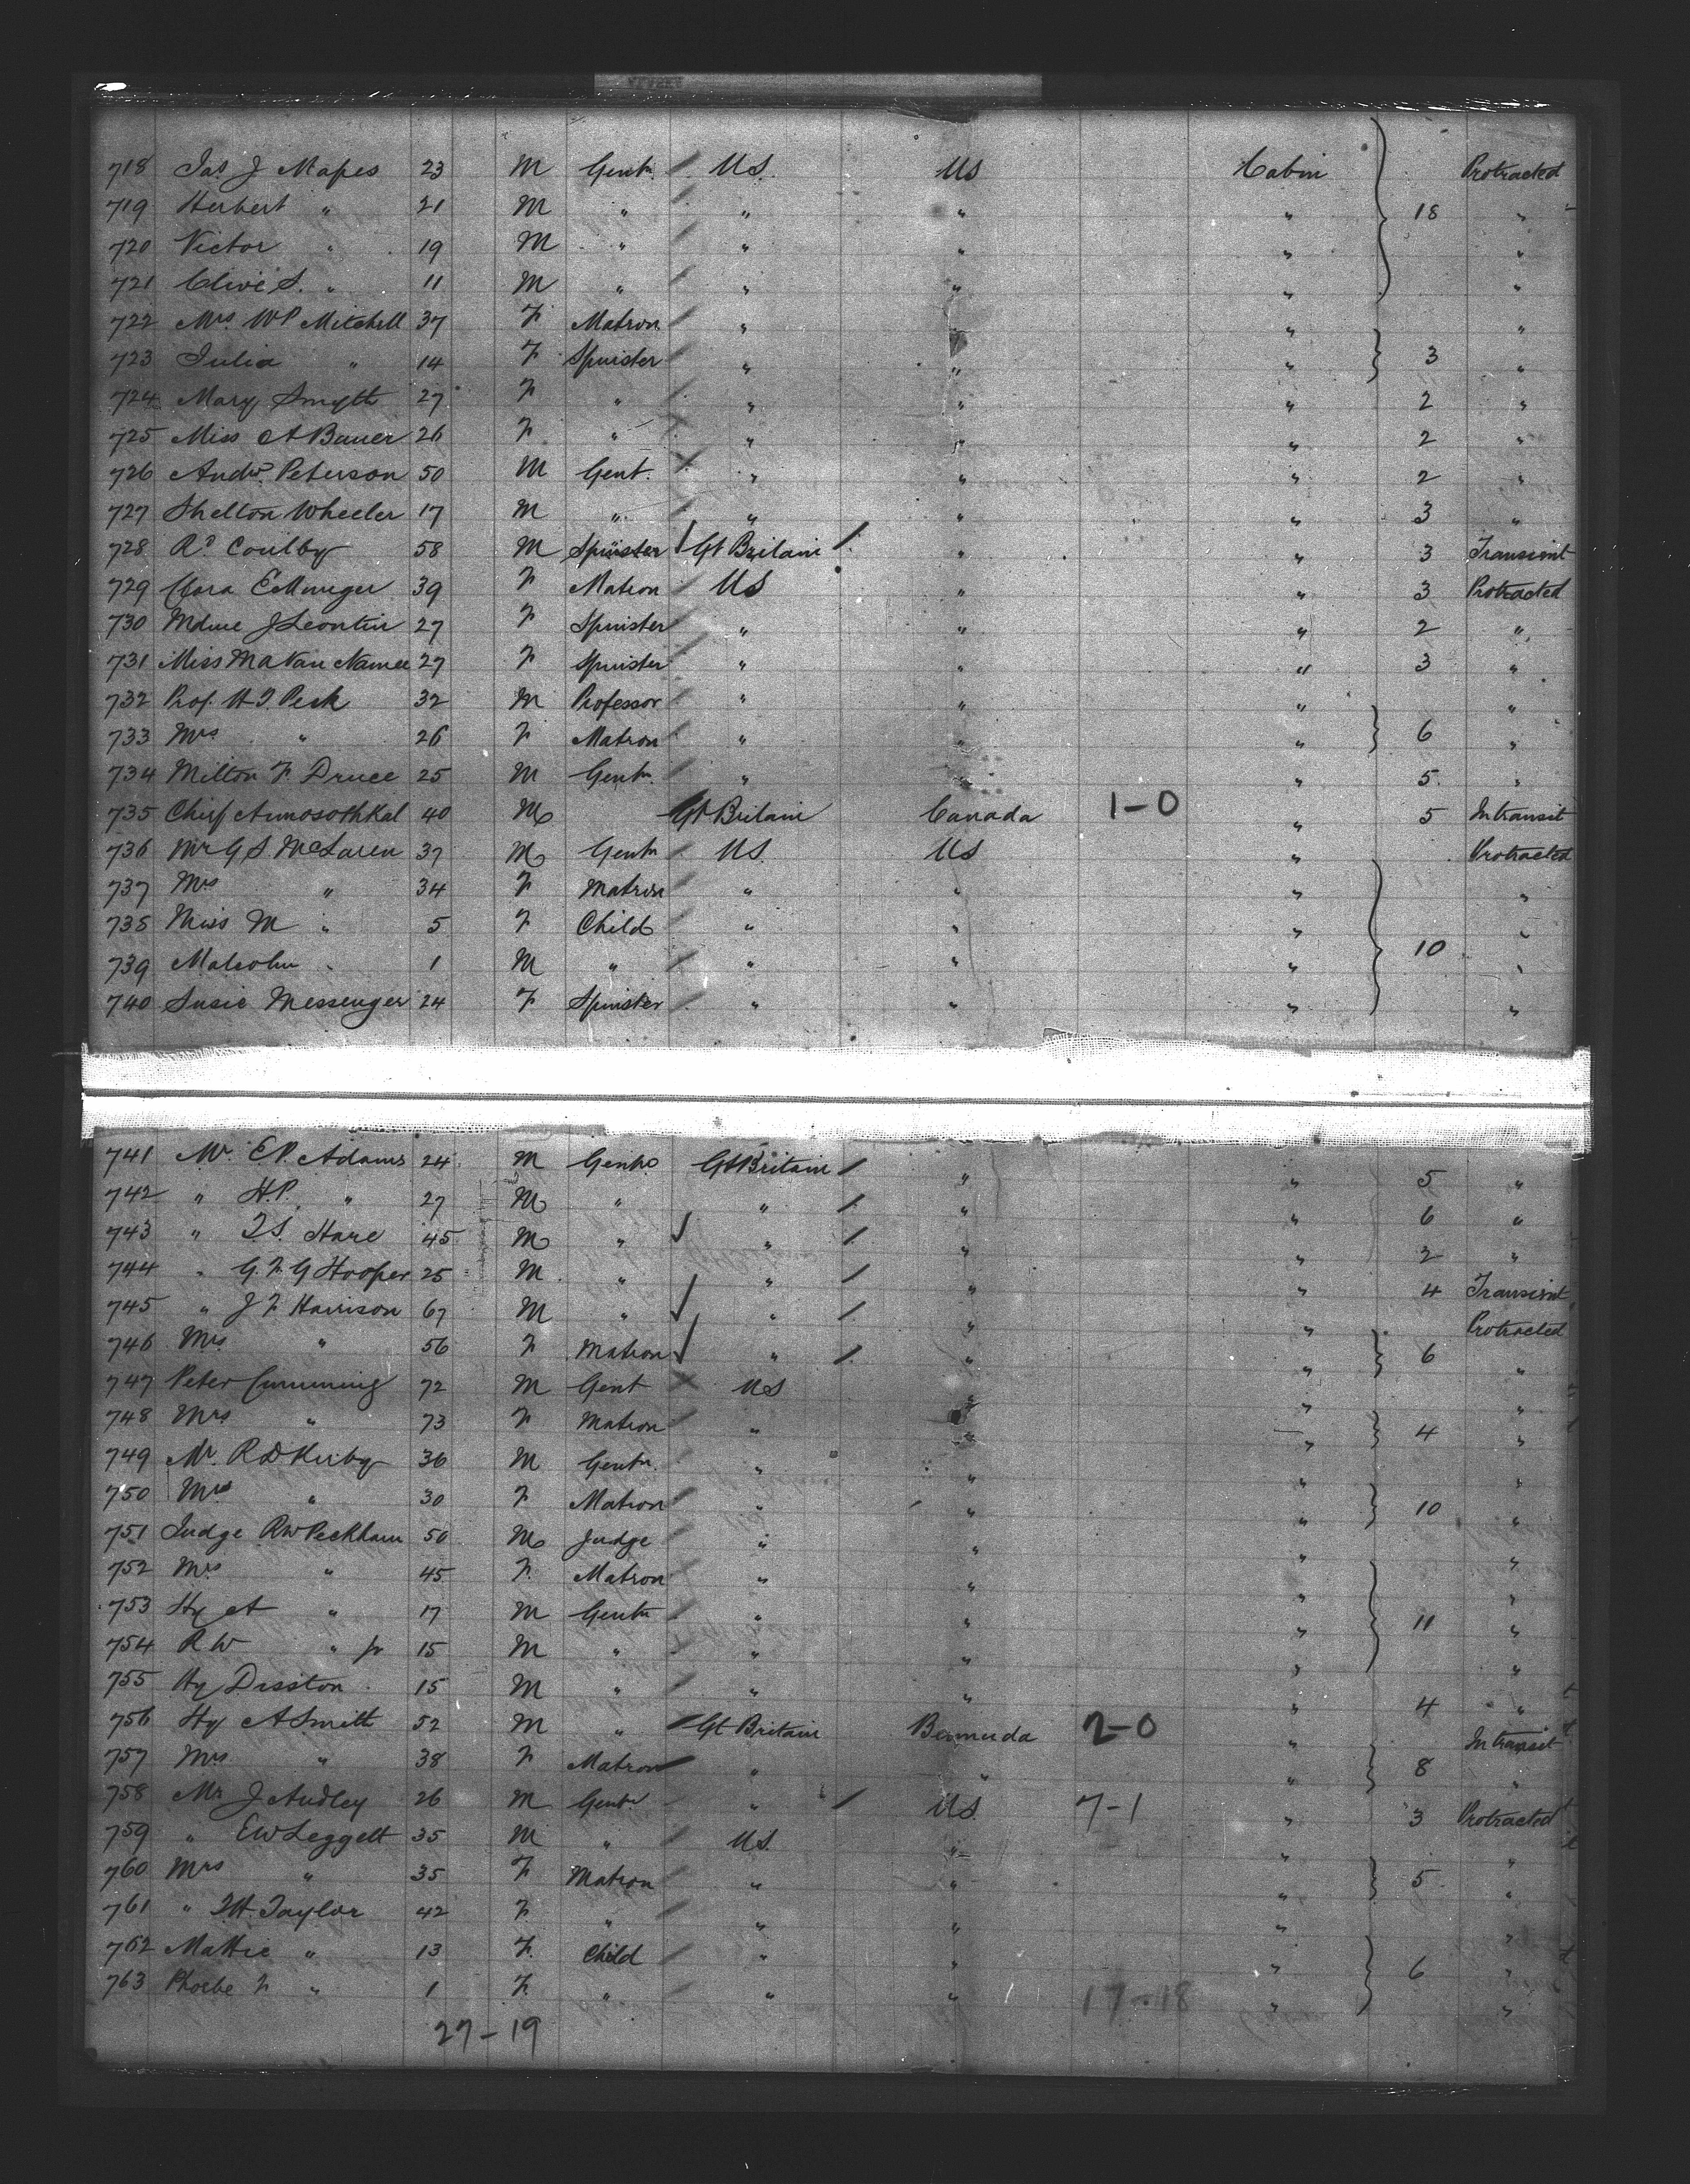 718 Jas J Mapes 23 M Gentn U.S. US Cabin Protracted
719 Herbert " 21 M " " " " 18 "
720 Victor " 19 M " " " " "
721 Clive S. " 11 M " " " " "
722 Mrs WP Mitchell 37 F Matron " " " "
723 Julia " 14 F Spinster " " " 3 "
724 Mary Smyth 27 F " " " " 2 "
725 Miss A Bauer 26 F " " " " 2 "
726 Andw. Peterson 50 M Gent. " " " 2 "
727 Shelton Wheeler 17 M " " " " 3 "
728 Rd Coulby 58 M Spinster Gt Britain " " 3 Transient
729 Clara E Munger 39 F Matron US " " 3 Protracted
730 Mdme J Leontin 27 F Spinster " " " 2 "
731 Miss MA Van Namee 27 F Spinster " " " 3 "
732 Prof. H.T. Peck 32 M Professor " " " "
733 Mrs " 26 F Matron " " " 6 "
734 Milton F Druce 25 M Gentn. " " " 5 "
735 Chief 40 M Gt Britain Canada 1-0 " 5 Intransit
736 Mr G S. McLaren 37 M Gentn U.S. US " Protracted
737 Mrs " 34 F Matron " " " "
738 Miss M " 5 F Child " " " "
739 Malcolm " 1 M " " " " 10 "
740 Susie Messenger 24 F Spinster " " " "
741 Mr. E.P. Adams 24 M Gentn Gt Britain " " 5 "
742 " H.P. " 27 M " " " " 6 "
743 " T.S. Hare 45 M " " " " 2 "
744 " G. F. G Hooper 25 M " " " " 4 Transient
745 " J F Harrison 67 M " " " " Protracted
746 Mrs " 56 F Matron " " " 6 "
747 Peter Cumming 72 M Gent US " " "
748 Mrs " 73 F Matron " " " 4 "
749 Mr. R D Kirby 36 M Gentn. " " " "
750 Mrs " 30 F Matron " " " 10 "
751 Judge RW Peckham 50 M Judge " " " "
752 Mrs " 45 F. Matron " " " "
753 Hy A " 17 M Gentn " " " 11 "
754 R W " Jr 15 M " " " " "
755 Hy Disston 15 M " " " " 4 "
756 Hy A Smith 52 M " Gt Britain Bermuda 2-0 " Intransit
757 Mrs " 38 F Matron " " " 8 "
758 Mr J Audley 26 M Gentn " US. 7-1 " 3 Protracted
759 " EW Leggett 35 M " U.S. " " "
760 Mrs " 35 F Matron " " " 5 "
761 " T.H. Taylor 42 F. " " " " "
762 Mattie " 13 F. Child " " " 6 "
763 Phoebe F " 1 F. " " " 17-18 " "
27-19